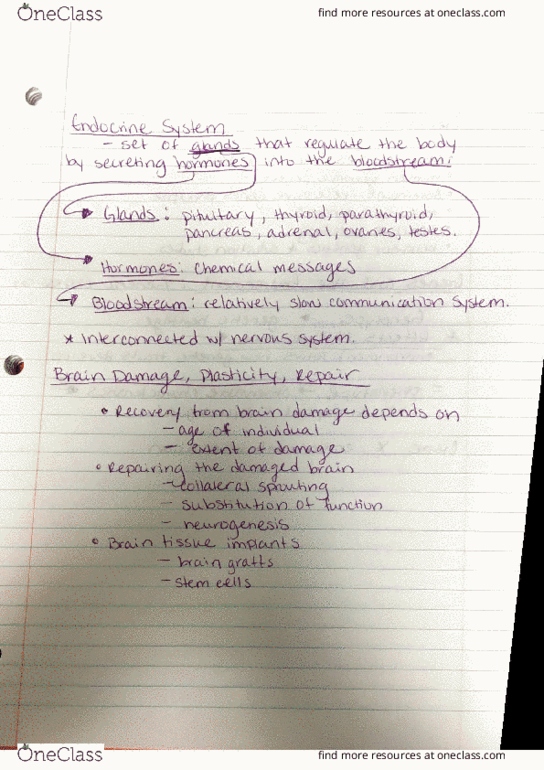 OneClass
find more resources at oneclass.com
Endocrine System
- set of glands that regulate the body
by secreting hormones into the bloodstream:
Glands: pituitary, thyroid, parathyroid,
pancreas, adrenal, ovaries, testes.
Hormones: chemical messages
Bloodstream: relatively slow communication system.
* Interconnected w/ nervous system.
Brain Damage, Plasticity, Repair
• Recovery from brain damage depends on
- age of individual
- extent of damage
• Repairing the damaged brain
- collateral sprouting
- substitution of function
- neurogenesis
• Brain tissue implants
- brain grafts
- stem cells
OneClass
find more resources at oneclass.com